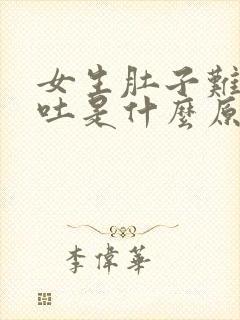 女生肚子難
吐是什麼原
李偉華